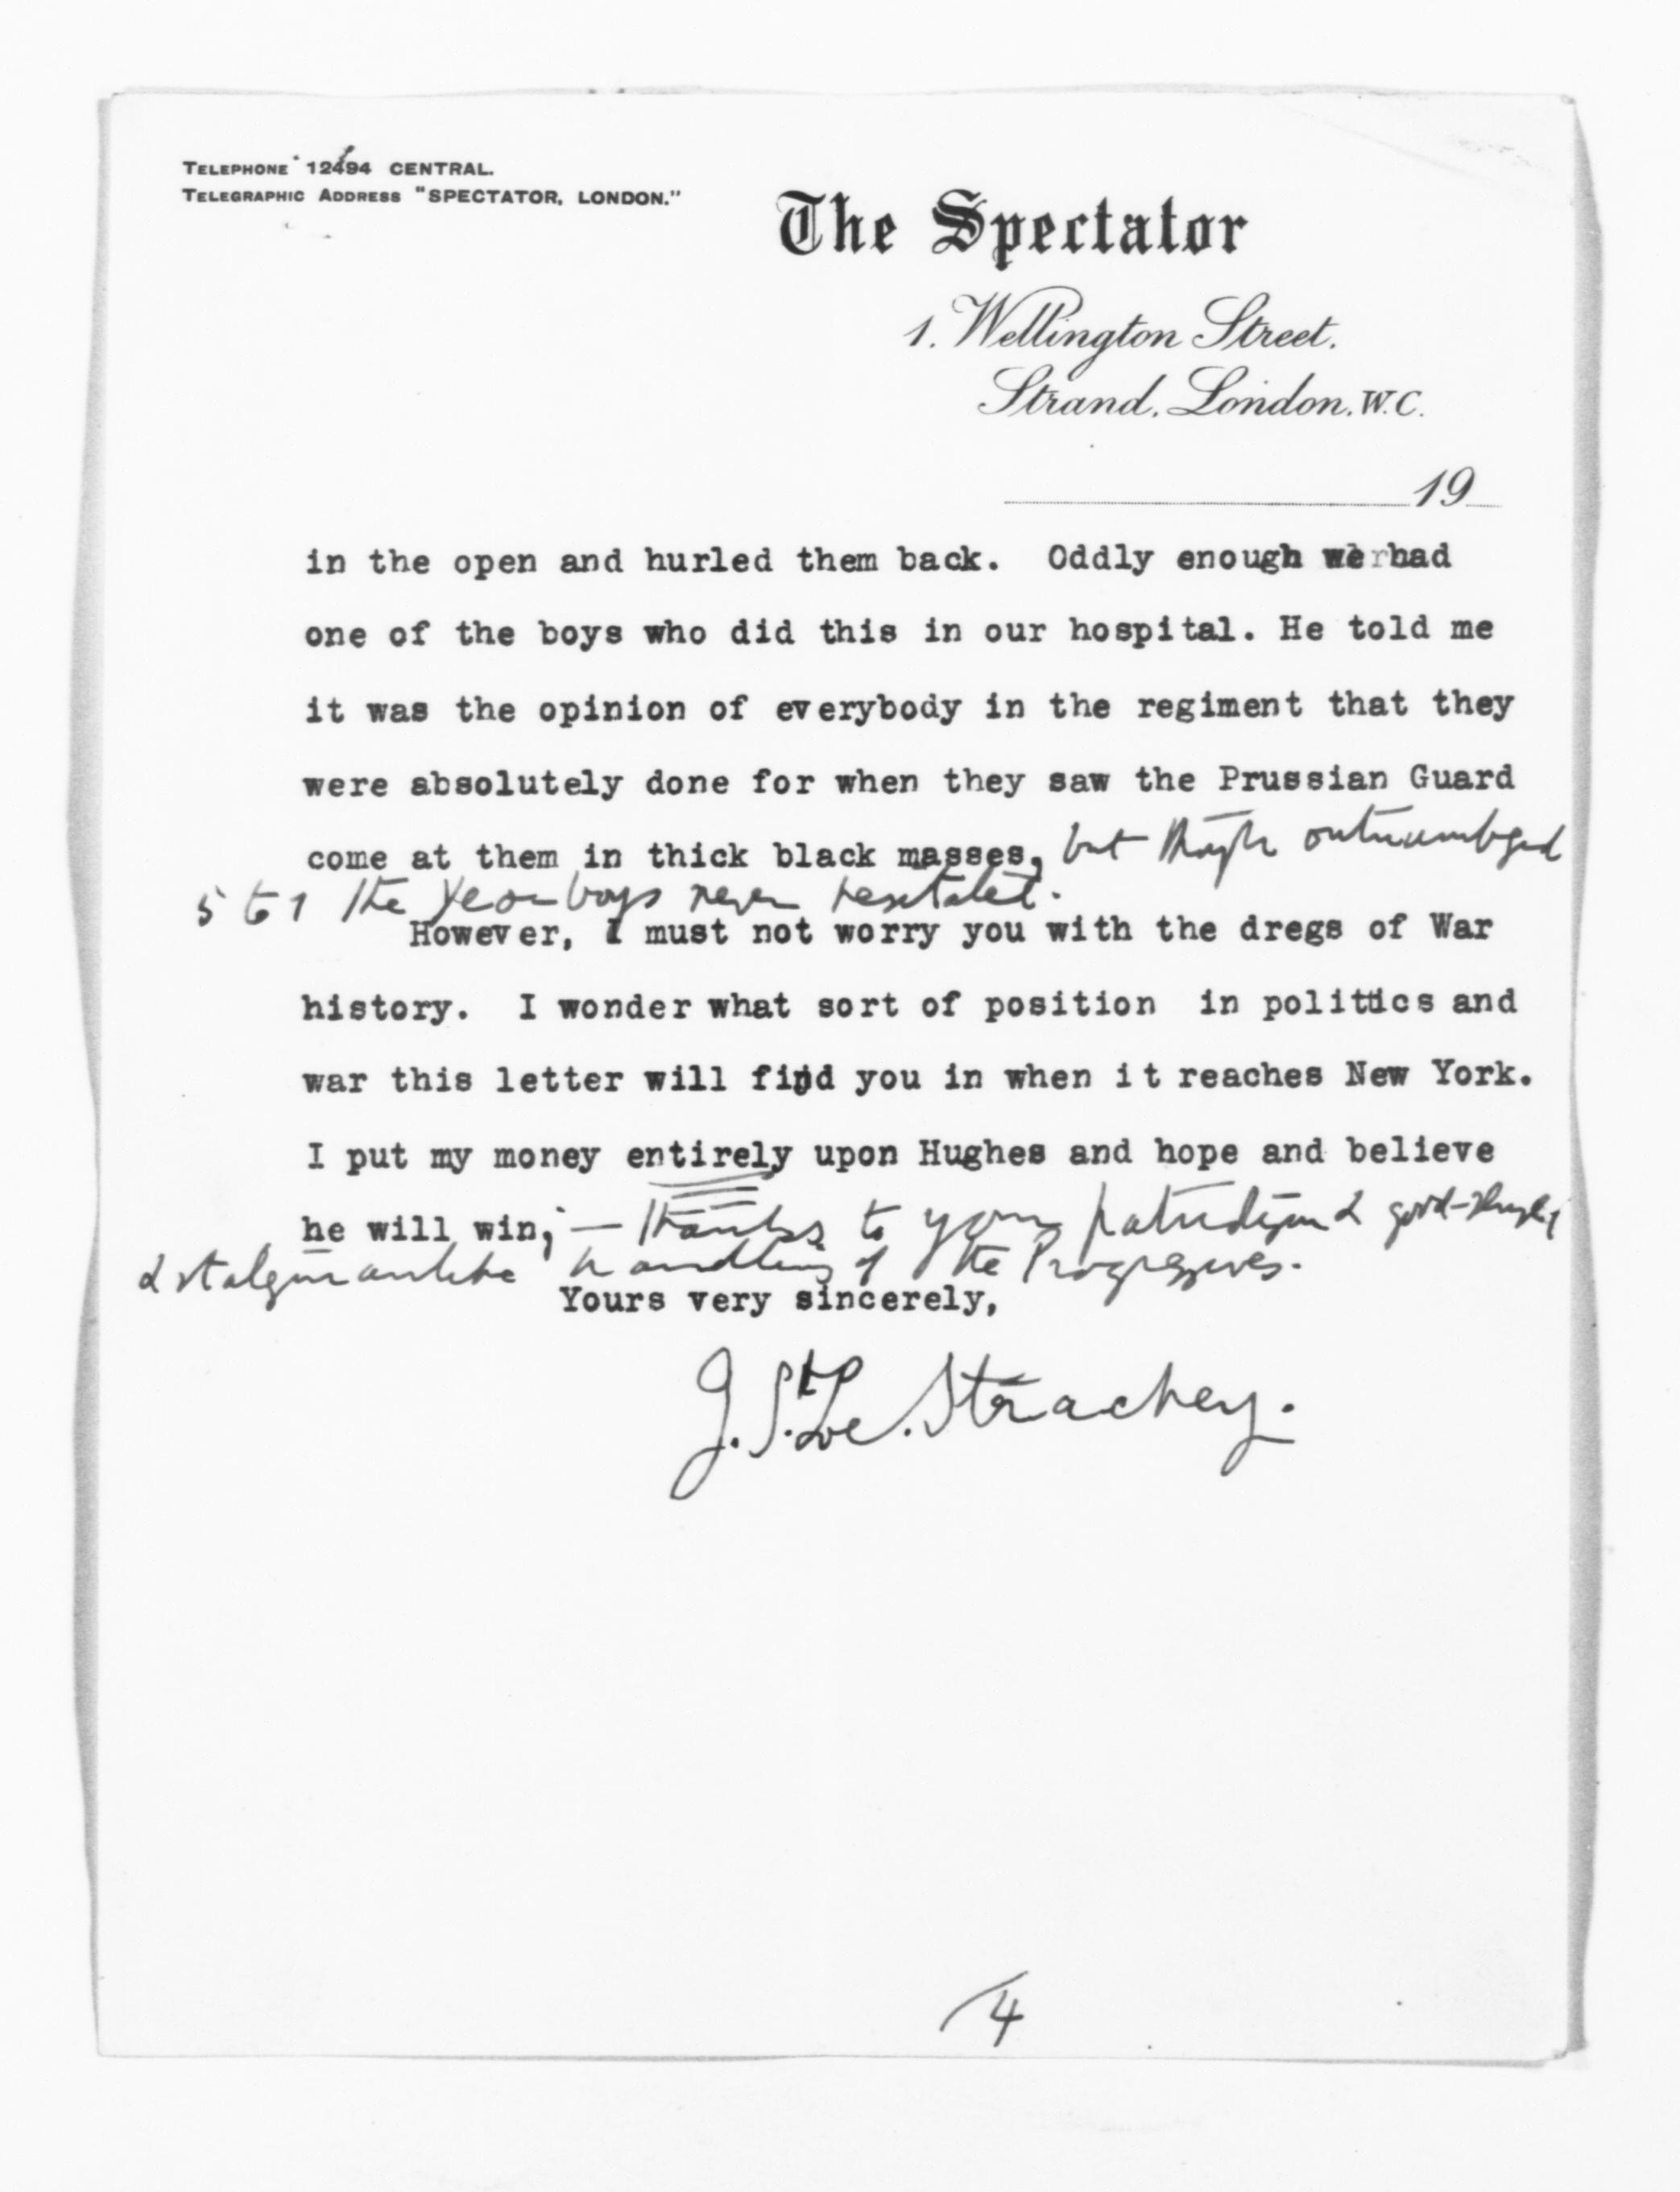 TELEPHONE 12494 CENTRAL.
TELEGRAPHIC ADDRESS "SPECTATOR, LONDON."
The Spectator
1. Wellington Street.
Strand. London. W.C.
19
in the open and hurled them back. Oddly enough we had
one of the boys who did this in our hospital. He told me
it was the opinion of everybody in the regiment that they
were absolutely done for when they saw the Prussian Guard
come at them in thick black masses, but though outnumbered
5 to 1 the boys never hesitated.
However, I must not worry you with the dregs of War
history. I wonder what sort of position in polittics and
war this letter will find you in when it reaches New York.
I put my money entirely upon Hughes and hope and believe
he will win; — thanks to your patriotism & good-
& statesmanlike handling of the Progressives.
Yours very sincerely,
J. St. Loe. Strachey.
4